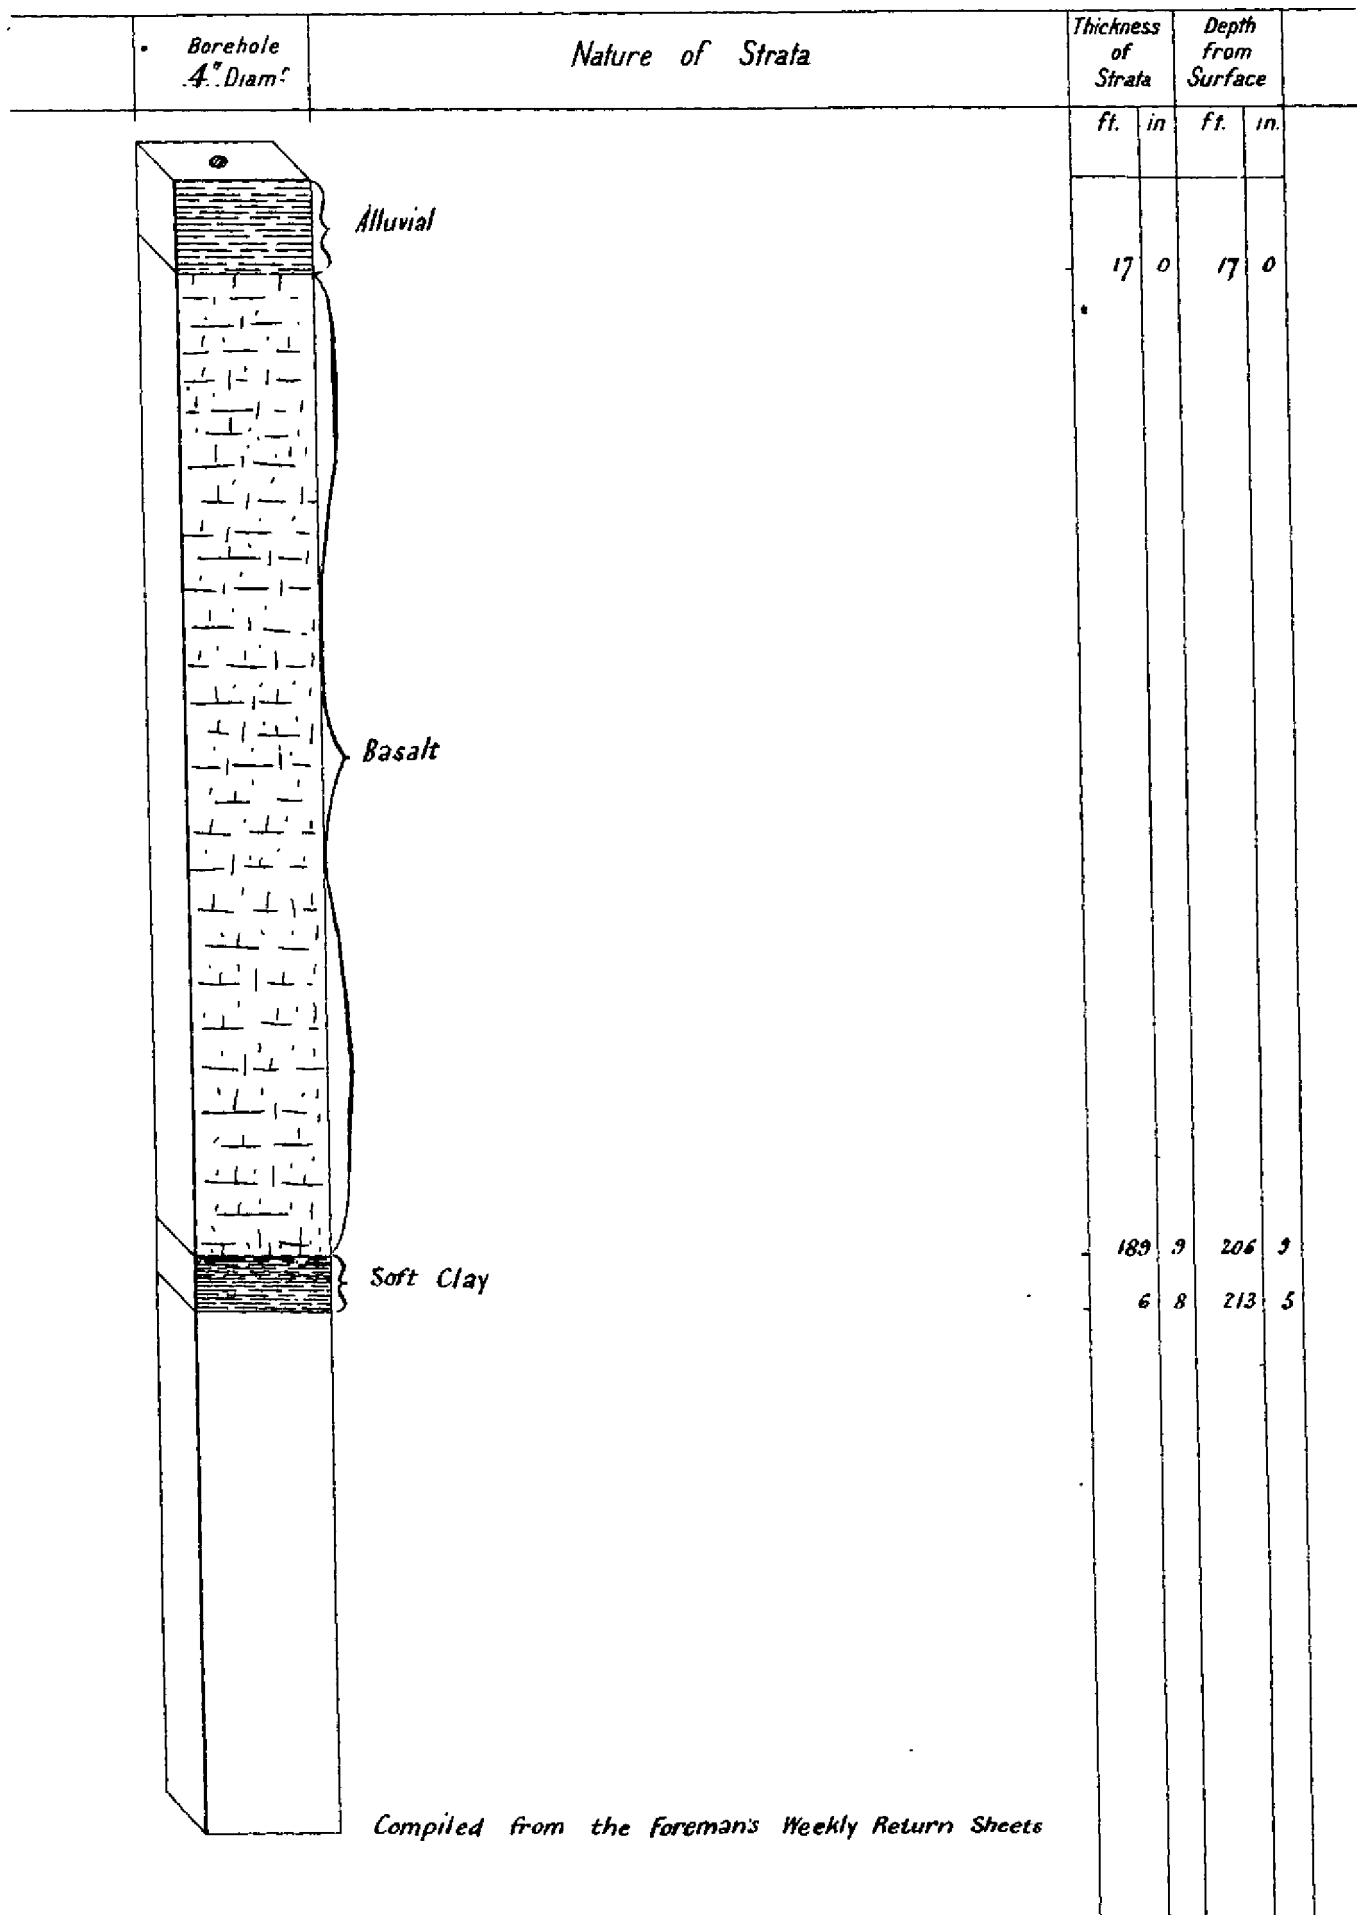 Borehole
4" Diamr
Nature of Strata
Thickness
of
Strata
Depth
from
Surface
ft. in ft. in.
Alluvial
17 0 17 0
Basalt
189 9 206 9
Soft Clay
6 8 213 5
Compiled from the Foreman's Weekly Return Sheets